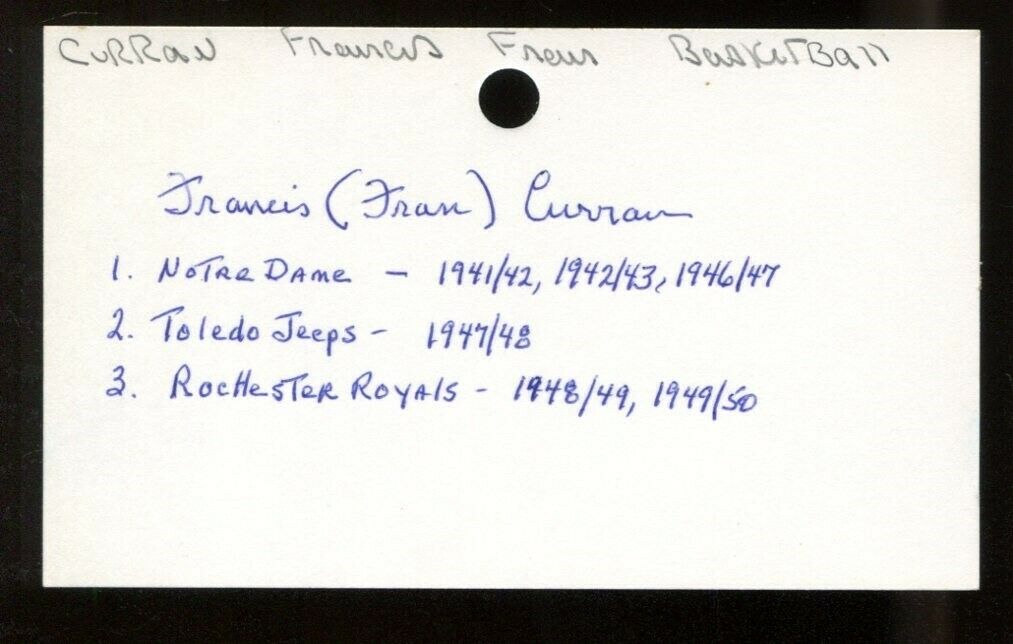 CURRAN Francis Fran BasketBall
Francis (Fran) Curran
1. Notre Dame - 1941/42, 1942/43, 1946/47
2. Toledo Jeeps - 1947/48
3. Rochester Royals - 1948/49, 1949/50